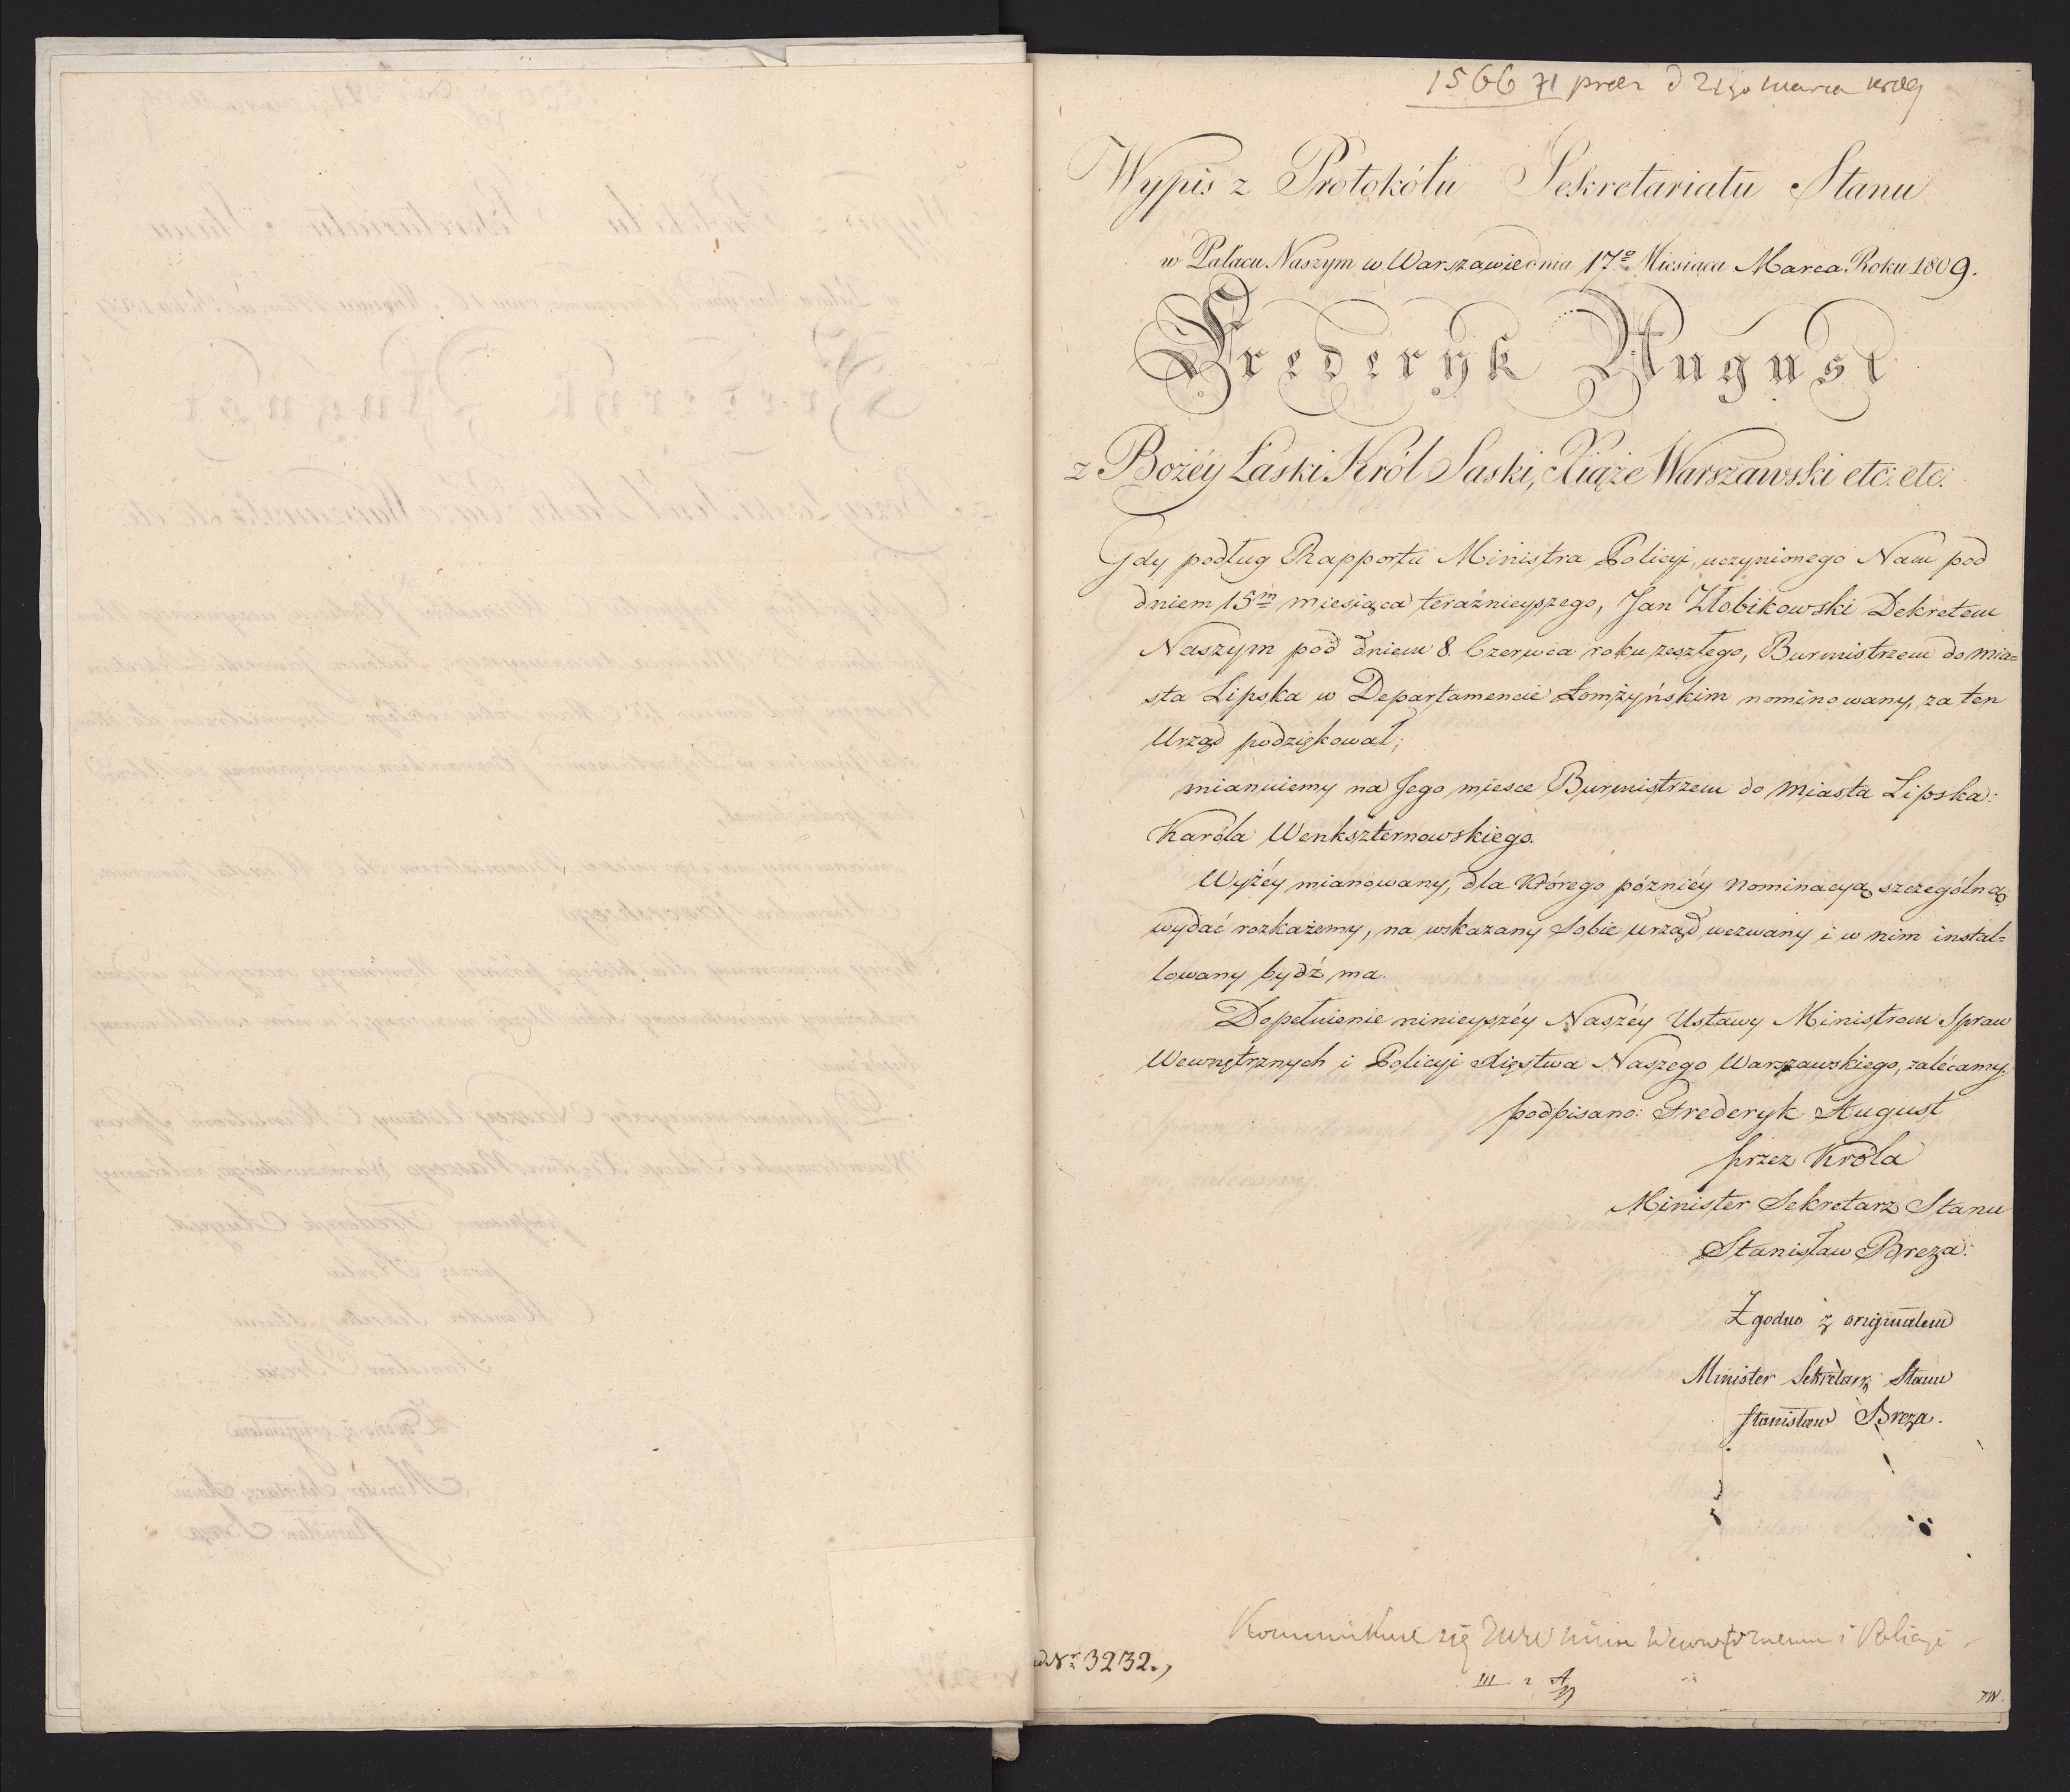 1566 71 prez d 21go marca 1809
Wypis z Protokółu Sekretariatu Stanu
w Pałacu Naszym w Warszawie dnia 17o Miesiąca Marca Roku 1809.
Frederyk August
z Bożéy Łaski Król Saski, Xiąże Warszawski etc: etc:
Gdy podług Rapportu Ministra Policyi, uczynionego Nam pod
dniem 15m miesiąca teraźnieyszego, Jan Złobikowski Dekretem
Naszym pod dniem 8. Czerwca roku zeszłego, Burmistrzem do mia=
sta Lipska w Departamencie Łomżyńskim nominowany, za ten
Urząd podziękował;
mianuiemy na Jego miesce Burmistrzem do miasta Lipska:
Karóla Wenksternowskiego.
Wyżéy mianowany, dla którego późniéy nominacyą szczególną
wydać rozkażemy, na wskazany Sobie urząd wezwany i w nim instal=
lowany bydź ma.
Dopełnienie ninieyszéy Naszéy Ustawy Ministrom Spraw
Wewnętrznych i Policyi Xięstwa Naszego Warszawskiego, zalécamy.
podpisano: Frederyk August
przez Króla
Minister Sekretarz Stanu
Stanisław Breza.
Zgodno z originałem
Minister Sekretarz Stanu
Stanisław Breza.
Kommunikuie się Wewnętrznemu i Policyi
ad Nr 3232.,
III